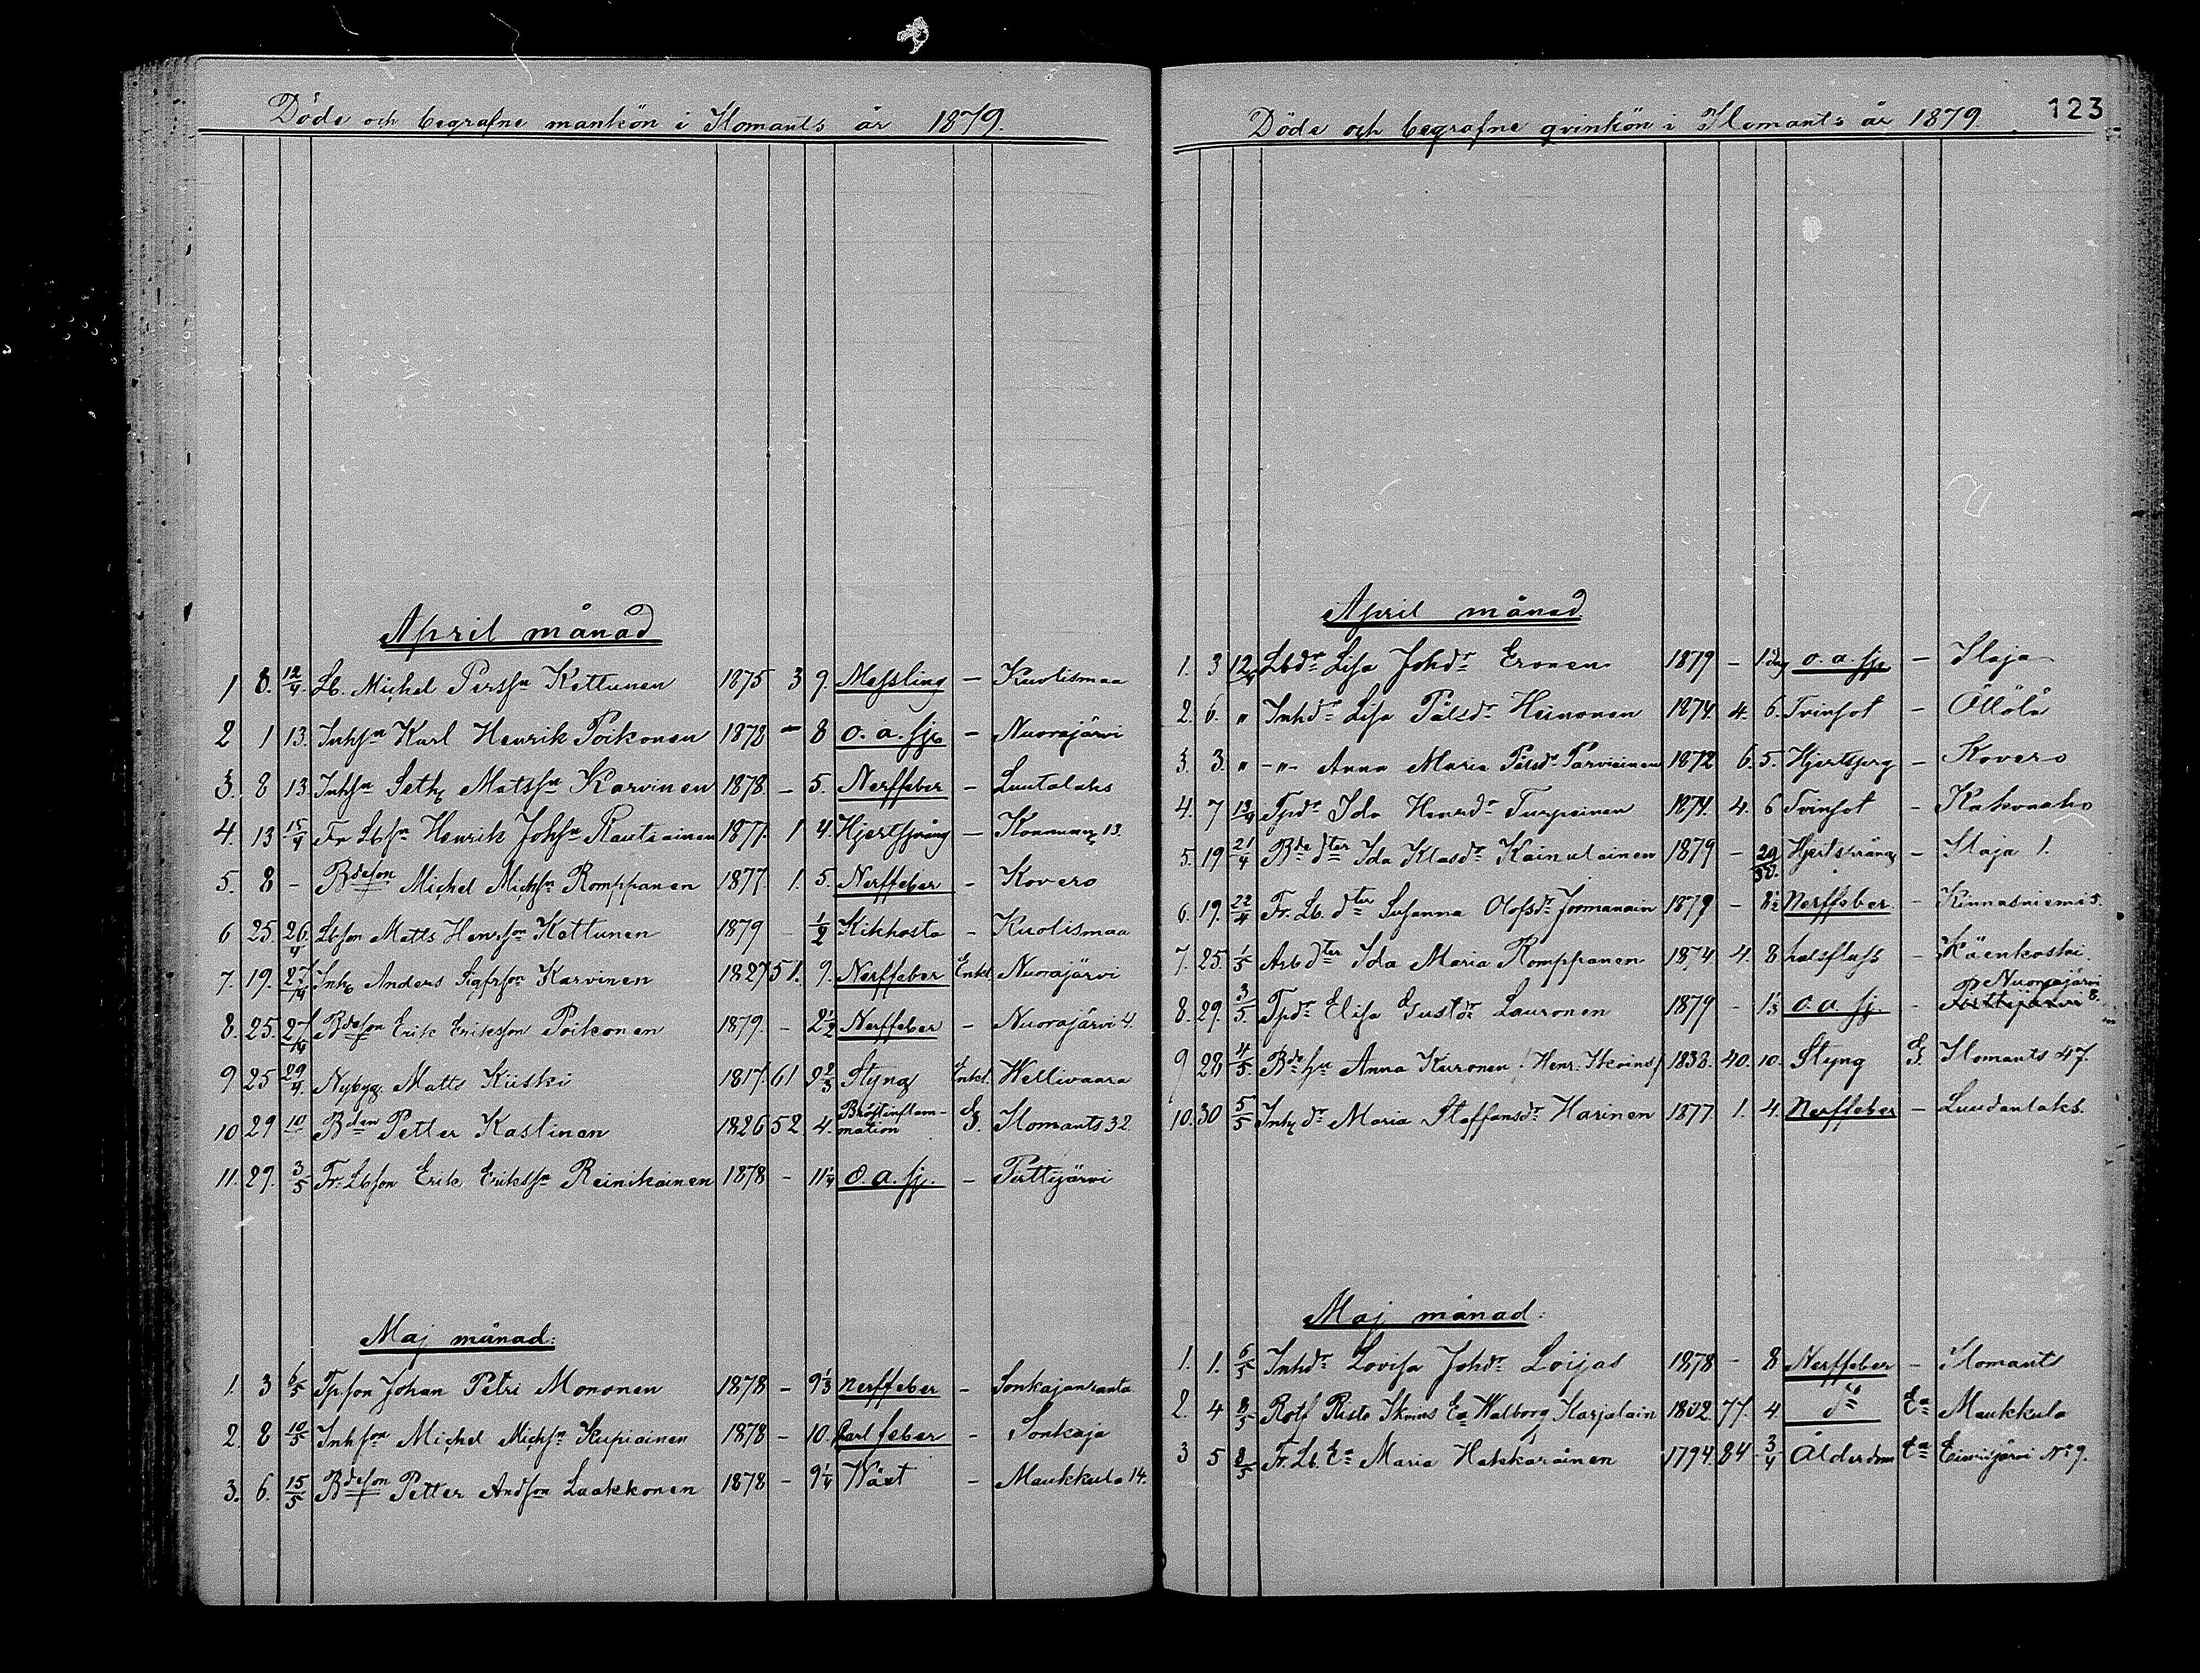 Döde och begrafne mankön i Ilomants år 1879.
April månad
1 8. 12/4 Lb. Michel Perssn Kettunen 1875 3 9. Messling — Kuolismaa
2 1 13. Inhsn Karl Henrik Poikonen 1878 – 8 o. a. sj. — Nuorajärvi
3. 8 13. Inhsn Seth Matssn Karvinen 1878 – 5. Nerffeber — Luutalaks
4. 13 15/4 Fr Lbsn Henrik Johsn Rautiainen 1877. 1 4. Hjertsprång — Konnunn 13.
5. 8 – Bdeson Michel Michsn Romppanen 1877 1. 5. Nerffeber – Kovero
6 25. 26/4 Lbson Matts Henrson Kettunen 1879 – 1/2 Kikhosta – Kuolismaa
7. 19. 27/4 Inh. Anders Sigfrson Karvinen 1827 51. 9. Nerffeber Enkl. Nuorajärvi
8. 25. 27/4 Bdeson Erik Eriksson Poikonen 1879. – 2 1/2 Nerffeber – Nuorajärvi 4.
9 25 29/4. Nybyg. Matts Kiiski 1817. 61 9 2/3 Styng Enkl. Wellivaara
10 29 10 Bden Petter Kastinen 1826 52 4. Bröstinflammation G. Ilomants 32.
11. 29. 3/5 Fr. Lbson Erik Erikssn Reinikainen 1878 – 11 1/4 o. a. sj. – Pirttijärvi
Maj månad:
1. 3 6/5 Tpson Johan Petri Mononen 1878 – 9 1/3 nerffeber – Sonkajanranta
2. 8 10/5 Inhson Michel Michsn Kupiainen 1878 – 10. feber – Sonkaja
3. 6. 15/5 Bdeson Petter Andson Laakkonen 1878 – 9 1/4 Wäxt – Maukkula 14.
Döde och begrafne qvinkön i Ilomants år 1879. 123
April månad
1. 3 12/4 Lbdr Lisa Johdr Eronen 1879 – 1 dag o. a. sj. – Ilaja
2. 6. " Inhdr Lisa Pålsdr Heinonen 1874. 4. 6. Tvinsot – Ollölä
3. 3. " – " – Anna Maria Pålsdr Parviainen 1872 6. 5. – Kovero
4. 7 13/4 Tpdr Ida Henrdr Turpeinen 1874. 4. 6 Tvinsot – Kakonaho
5. 19 21/4 Bde dter Ida Klasdr Kainulainen 1879 – 29/30. Hjertsprång – Ilaja 1.
6. 19. 22/4 Fr. Lb. dter Susanna Olofsdr Jormanain 1879 – 8 1/2 Nerffeber – Kinnasniemi 5.
7. 25. 1/5 Arb dter Ida Maria Romppanen 1874 4. 8 halsfluss – Käenkoski.
8. 29. 3/5 Tpdr Elisa Gustdr Lauronen 1879 – o. a. sj. – Nuorajärvi 8.
9 28 4/5. Bdehu Anna Kuronen (Henr. Ikoins) 1838. 40. 10. Styng G. Ilomants 47.
10. 30 5/5 Inh dr Maria Staffansdr Harinen 1877. 1. 4. Nerffeber – Luudanlaks.
Maj månad:
1. 1. 6/5 Inhdr Lovisa Johdr Loijas 1878 – 8 Nerffeber – Ilomants
2. 4 8/5 Rotf Risto Ikoins Ea Walborg Karjalain 1802. 77. 4. do Ea Maukkula
3 5 8/5 Fr. Lb. Ea Maria Hakkarainen 1794. 84 3/4 Ålderdom Ea No 9.